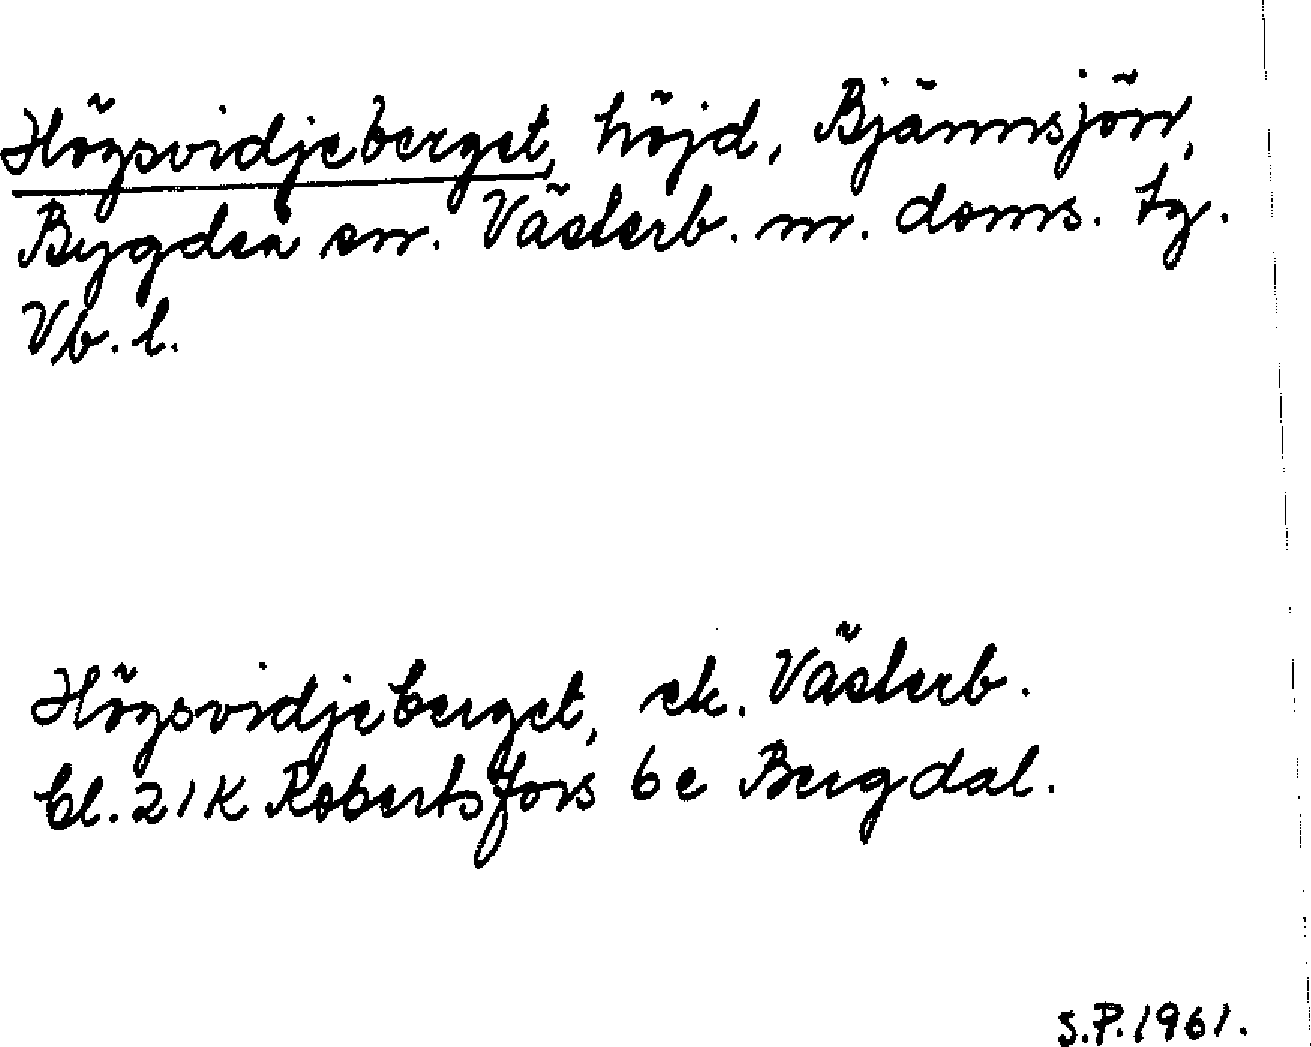 Högsvidjeberget, höjd, Bjännsjön,
Bygdeå sn. Västerb. m. doms. tg.
Vb. l.
Högsvidjeberget, ek. Västerb.
bl. 21K Robertsfors 6e Bergdal.
S.P. 1961.